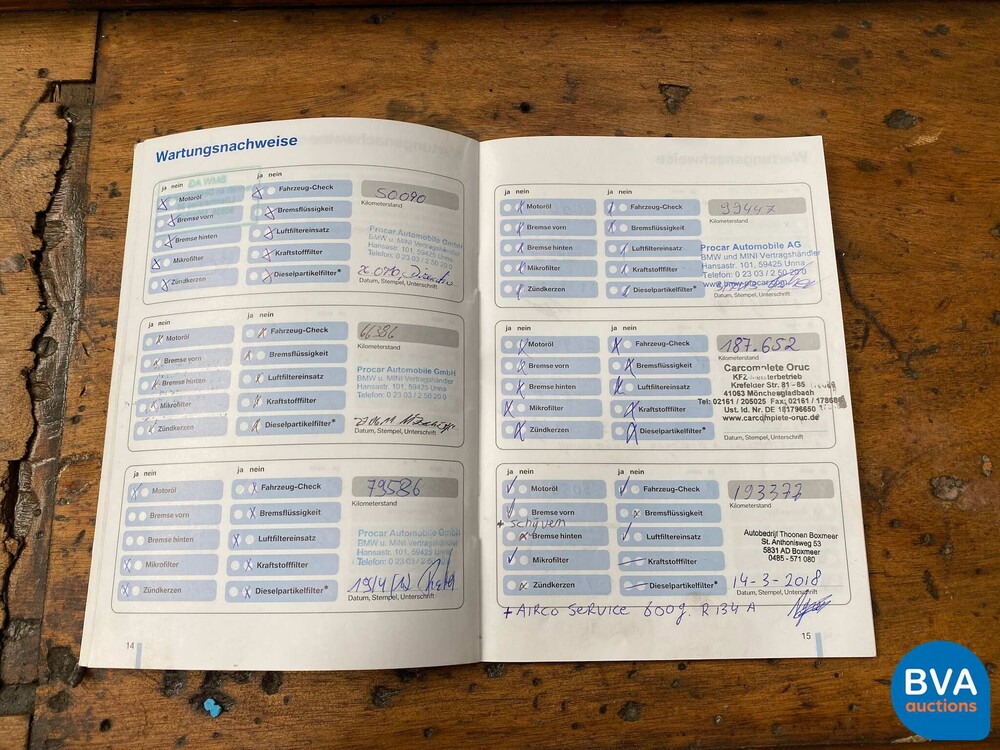 Wartungsnachweise
ja nein
ja nein
Motoröl
Fahrzeug-Check
50090
Bremse vorn
Bremsflüssigkeit
Kilometerstand
Bremse hinten
Luftfiltereinsatz
Procar Automobile GmbH
BMW u. MINI Vertragshändler
Mikrofilter
Kraftstofffilter
Hansastr. 101, 59425 Unna
Telefon: 0 23 03 / 2 50 20 0
Zündkerzen
Dieselpartikelfilter*
Datum, Stempel, Unterschrift
ja nein
ja nein
Motoröl
Fahrzeug-Check
Kilometerstand
Bremse vorn
Bremsflüssigkeit
Bremse hinten
Luftfiltereinsatz
Procar Automobile GmbH
BMW u. MINI Vertragshändler
Hansastr. 101, 59425 Unna
Telefon: 0 23 03 / 2 50 20 0
Mikrofilter
Kraftstofffilter
Zündkerzen
Dieselpartikelfilter*
Datum, Stempel, Unterschrift
ja nein
ja nein
Motoröl
Fahrzeug-Check
79586
Kilometerstand
Bremse vorn
Bremsflüssigkeit
Bremse hinten
Luftfiltereinsatz
Procar Automobile GmbH
BMW u. MINI Vertragshändler
Hansastr. 101, 59425 Unna
Telefon: 0 23 03 / 2 50 20 0
Mikrofilter
Kraftstofffilter
Zündkerzen
Dieselpartikelfilter*
Datum, Stempel, Unterschrift
14
ja nein
ja nein
Motoröl
Fahrzeug-Check
99447
Kilometerstand
Bremse vorn
Bremsflüssigkeit
Bremse hinten
Luftfiltereinsatz
Procar Automobile AG
BMW und MINI Vertragshändler
Mikrofilter
Kraftstofffilter
Hansastr. 101, 59425 Unna
Telefon: 0 23 03 / 2 50 20 0
Zündkerzen
Dieselpartikelfilter*
Datum, Stempel, Unterschrift
ja nein
ja nein
Motoröl
Fahrzeug-Check
187.652
Kilometerstand
Bremse vorn
Bremsflüssigkeit
Carcomplete Oruc
Bremse hinten
Luftfiltereinsatz
Krefelder Str. 81 - 85
41063 Mönchengladbach
Mikrofilter
Kraftstofffilter
Tel: 02161 / 205025 Fax: 02161 /
Ust. Id. Nr. DE 181796650
www.carcomplete-oruc.de
Zündkerzen
Dieselpartikelfilter*
Datum, Stempel, Unterschrift
ja nein
ja nein
Motoröl
Fahrzeug-Check
193377
Kilometerstand
Bremse vorn
Bremsflüssigkeit
+ schijven
Bremse hinten
Luftfiltereinsatz
Autobedrijf Thoonen Boxmeer
St. Anthonisweg 53
5831 AD Boxmeer
0485 - 571 080
Mikrofilter
Kraftstofffilter
Zündkerzen
Dieselpartikelfilter*
14-3-2018
Datum, Stempel, Unterschrift
+ AIRCO SERVICE 600g. R134A
15
BVA
auctions